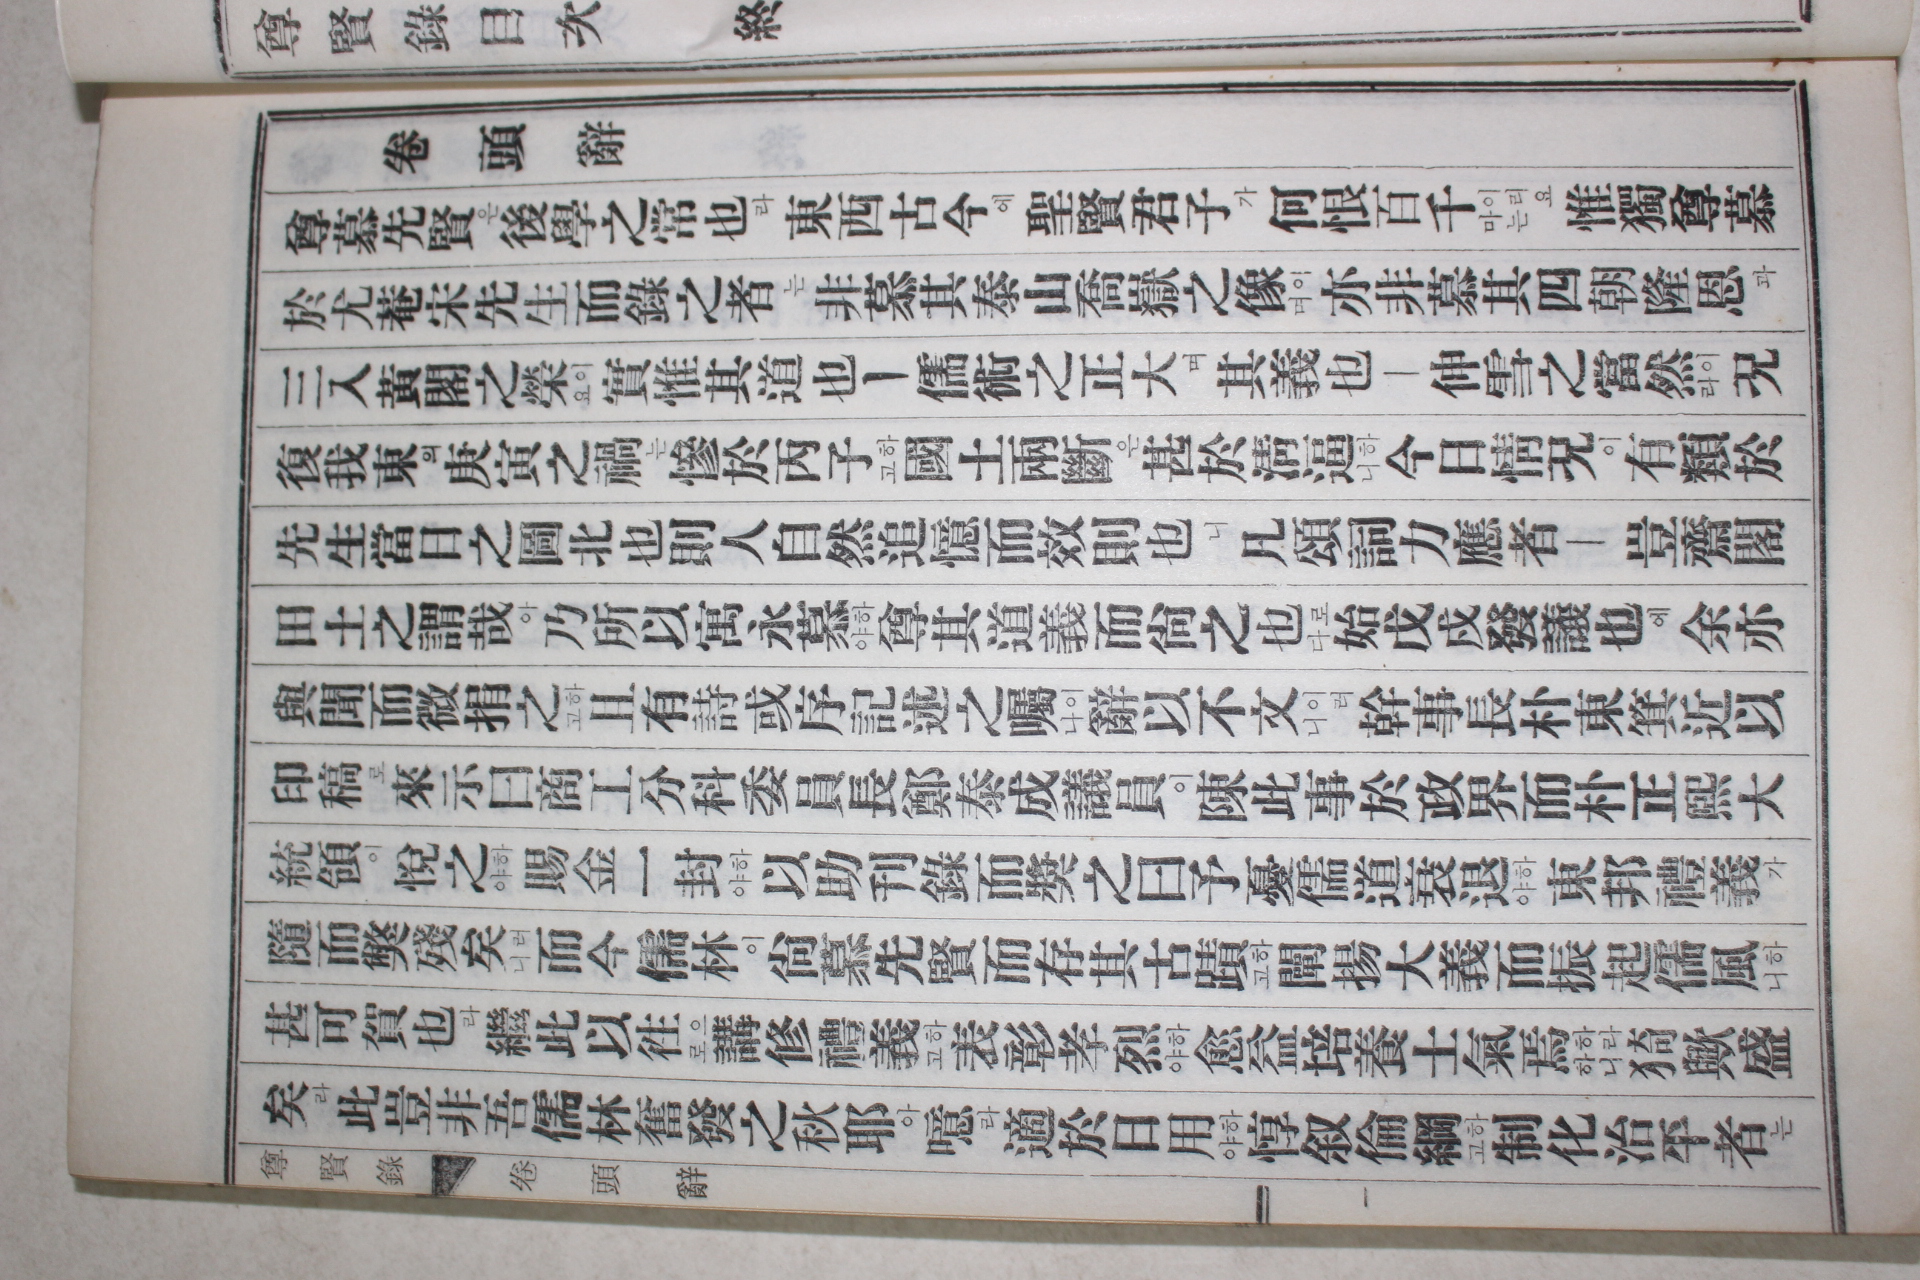 尊賢錄目次 終
卷頭辭
尊慕先賢은後學之常也라東西古今에聖賢君子가何恨百千이리요마는惟獨尊慕
於尤菴宋先生而錄之者는非慕其泰山喬嶽之像이며亦非慕其四朝隆恩과
三入黃閣之榮이요實惟其道也ㅣ儒術之正大며其義也ㅣ仲雪之當然이라況
復我東의庚寅之禍는慘於丙子하고國土兩斷은甚於淸逼하니今日情況이有類於
先生當日之圖北也則人自然追憶而效則也니凡頌詞力應者ㅣ豈齋閣
田土之謂哉아乃所以寓永慕하야尊其道義而尙之也로다始戊戌發議也에余亦
與聞而微捐之하고且有詩或序記述之囑이나辭以不文이러니幹事長朴東箕近以
印稿로來示曰商工分科委員長鄭泰成議員이陳此事於政界而朴正熙大
統領이悅之하야賜金一封하야以助刊錄而獎之曰予憂儒道衰退하야東邦禮義가
隨而獘殘矣러니而今儒林이尙慕先賢而存其古蹟하고闡揚大義而振起儒風하니
甚可賀也라繼此以往으로講修禮義하고表彰孝烈하야愈益培養士氣焉하라하니猗歟盛
矣라此豈非吾儒林奮發之秋耶아噫라適於日用하야惇叙倫綱하고制化治平者는
尊賢錄 卷頭辭 一